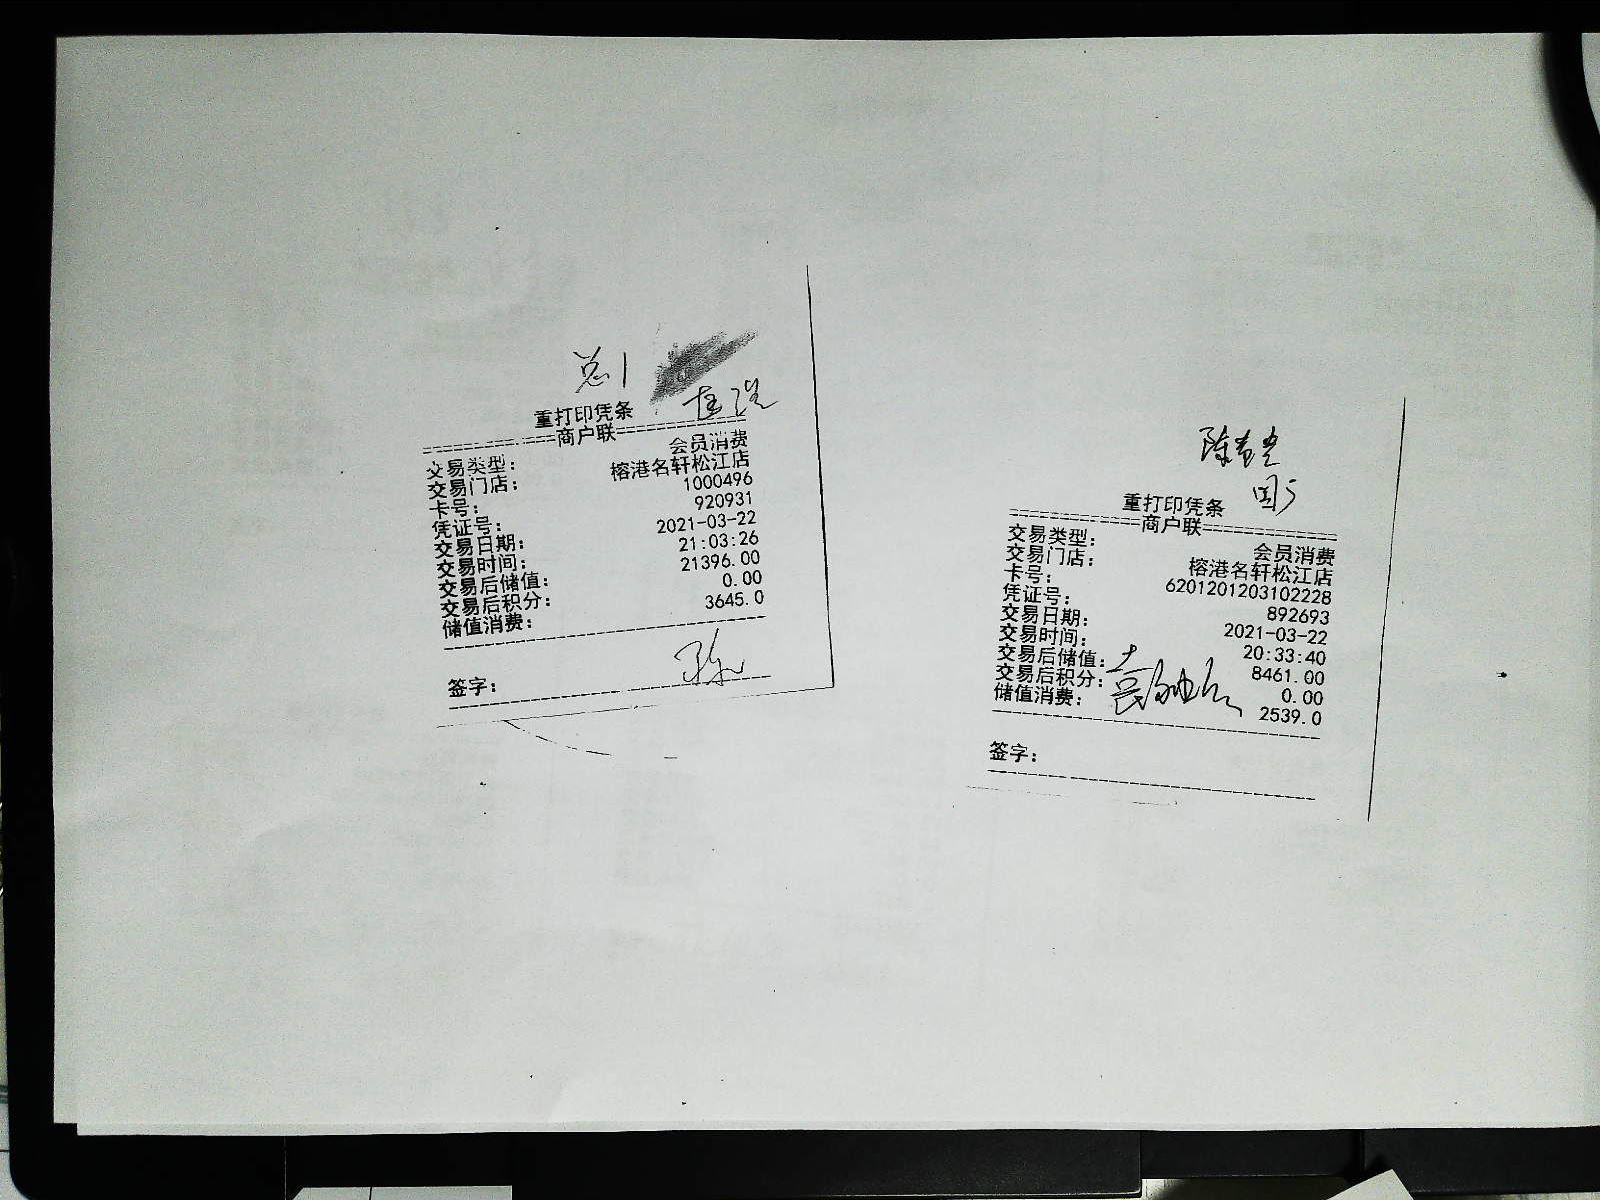 总1
重打印凭条
商户联
交易类型： 会员消费
交易门店： 榕港名轩松江店
卡号： 1000496
凭证号： 920931
交易日期： 2021-03-22
交易时间： 21:03:26
交易后储值： 21396.00
交易后积分： 0.00
储值消费： 3645.0
签字：
重打印凭条
商户联
交易类型： 会员消费
交易门店： 榕港名轩松江店
卡号： 6201201203102228
凭证号： 892693
交易日期： 2021-03-22
交易时间： 20:33:40
交易后储值： 8461.00
交易后积分： 0.00
储值消费： 2539.0
签字：